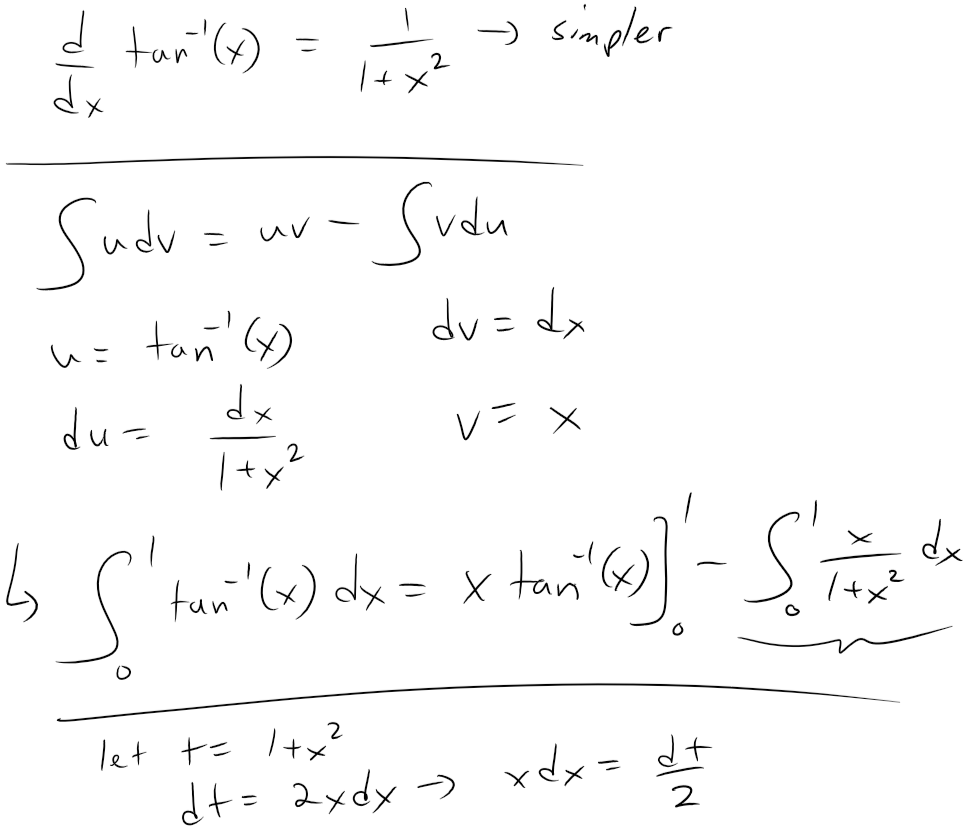 d/dx tan⁻¹(x) = 1/(1+x²) → simpler
∫udv = uv - ∫vdu
u = tan⁻¹(x) dv = dx
du = dx/(1+x²) v = x
↳ ∫₀¹ tan⁻¹(x) dx = x tan⁻¹(x)]₀¹ - ∫₀¹ x/(1+x²) dx
let t = 1+x²
dt = 2xdx → xdx = dt/2